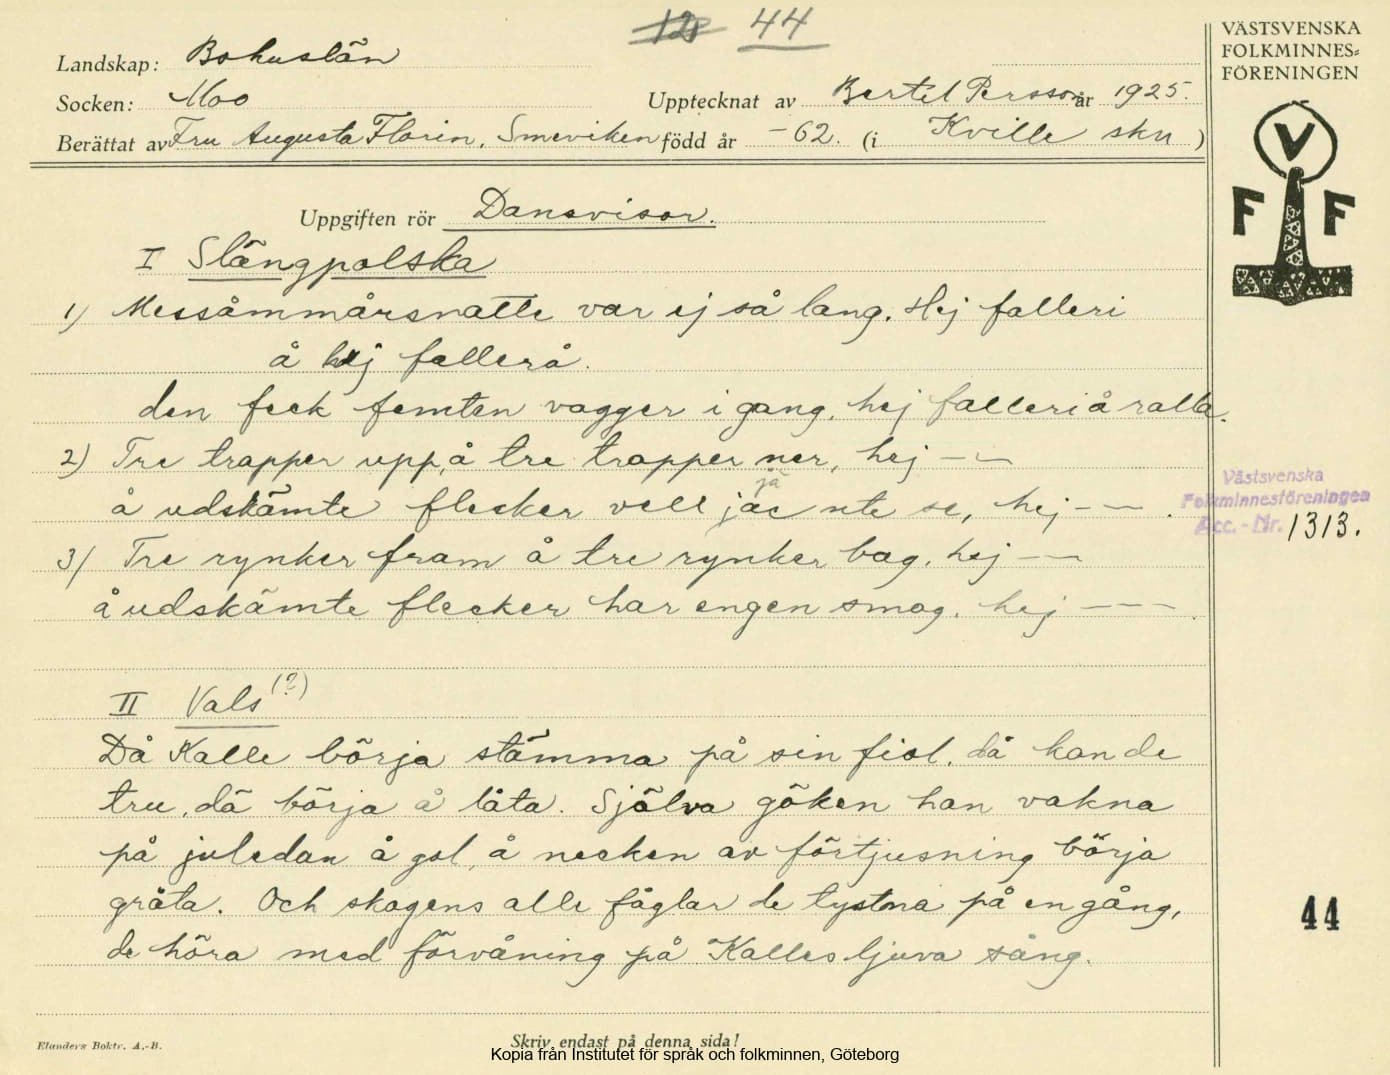 12 44
VÄSTSVENSKA
FOLKMINNES-
FÖRENINGEN
Landskap: Bohuslän
Socken: Moo Upptecknat av Bertel Persson år 1925.
Berättat av Fru Augusta Florin, Smeviken född år -62. (i Kville skn)
V
F F
Uppgiften rör Dansvisor.
I Slängpolska
1) Messåmmårsnatte var ej så lang. Hej falleri
å hej fallerå.
den feck femten vagger i gang, hej falleri å ralla.
2) Tre trapper upp, å tre trapper ner, hej - -
jä
å udskämte flecker vell jae nte se, hej - - .
3) Tre rynker fram å tre rynker bag, hej - -
å udskämte flecker har engen smag, hej - - - .
Västsvenska
Folkminnesföreningen
Acc. - Nr. 1313.
II Vals (?)
Då Kalle börja stämma på sin fiol, då kan de
tru, dä börja å låta. Själva göken han vakna
på juledan å gol, å necken av förtjusning börja
gråta. Och skogens alle fåglar de tystna på en gång,
de höra med förvåning på Kalles ljuva sång.
44
Elanders Boktr. A.-B.
Skriv endast på denna sida!
Kopia från Institutet för språk och folkminnen, Göteborg